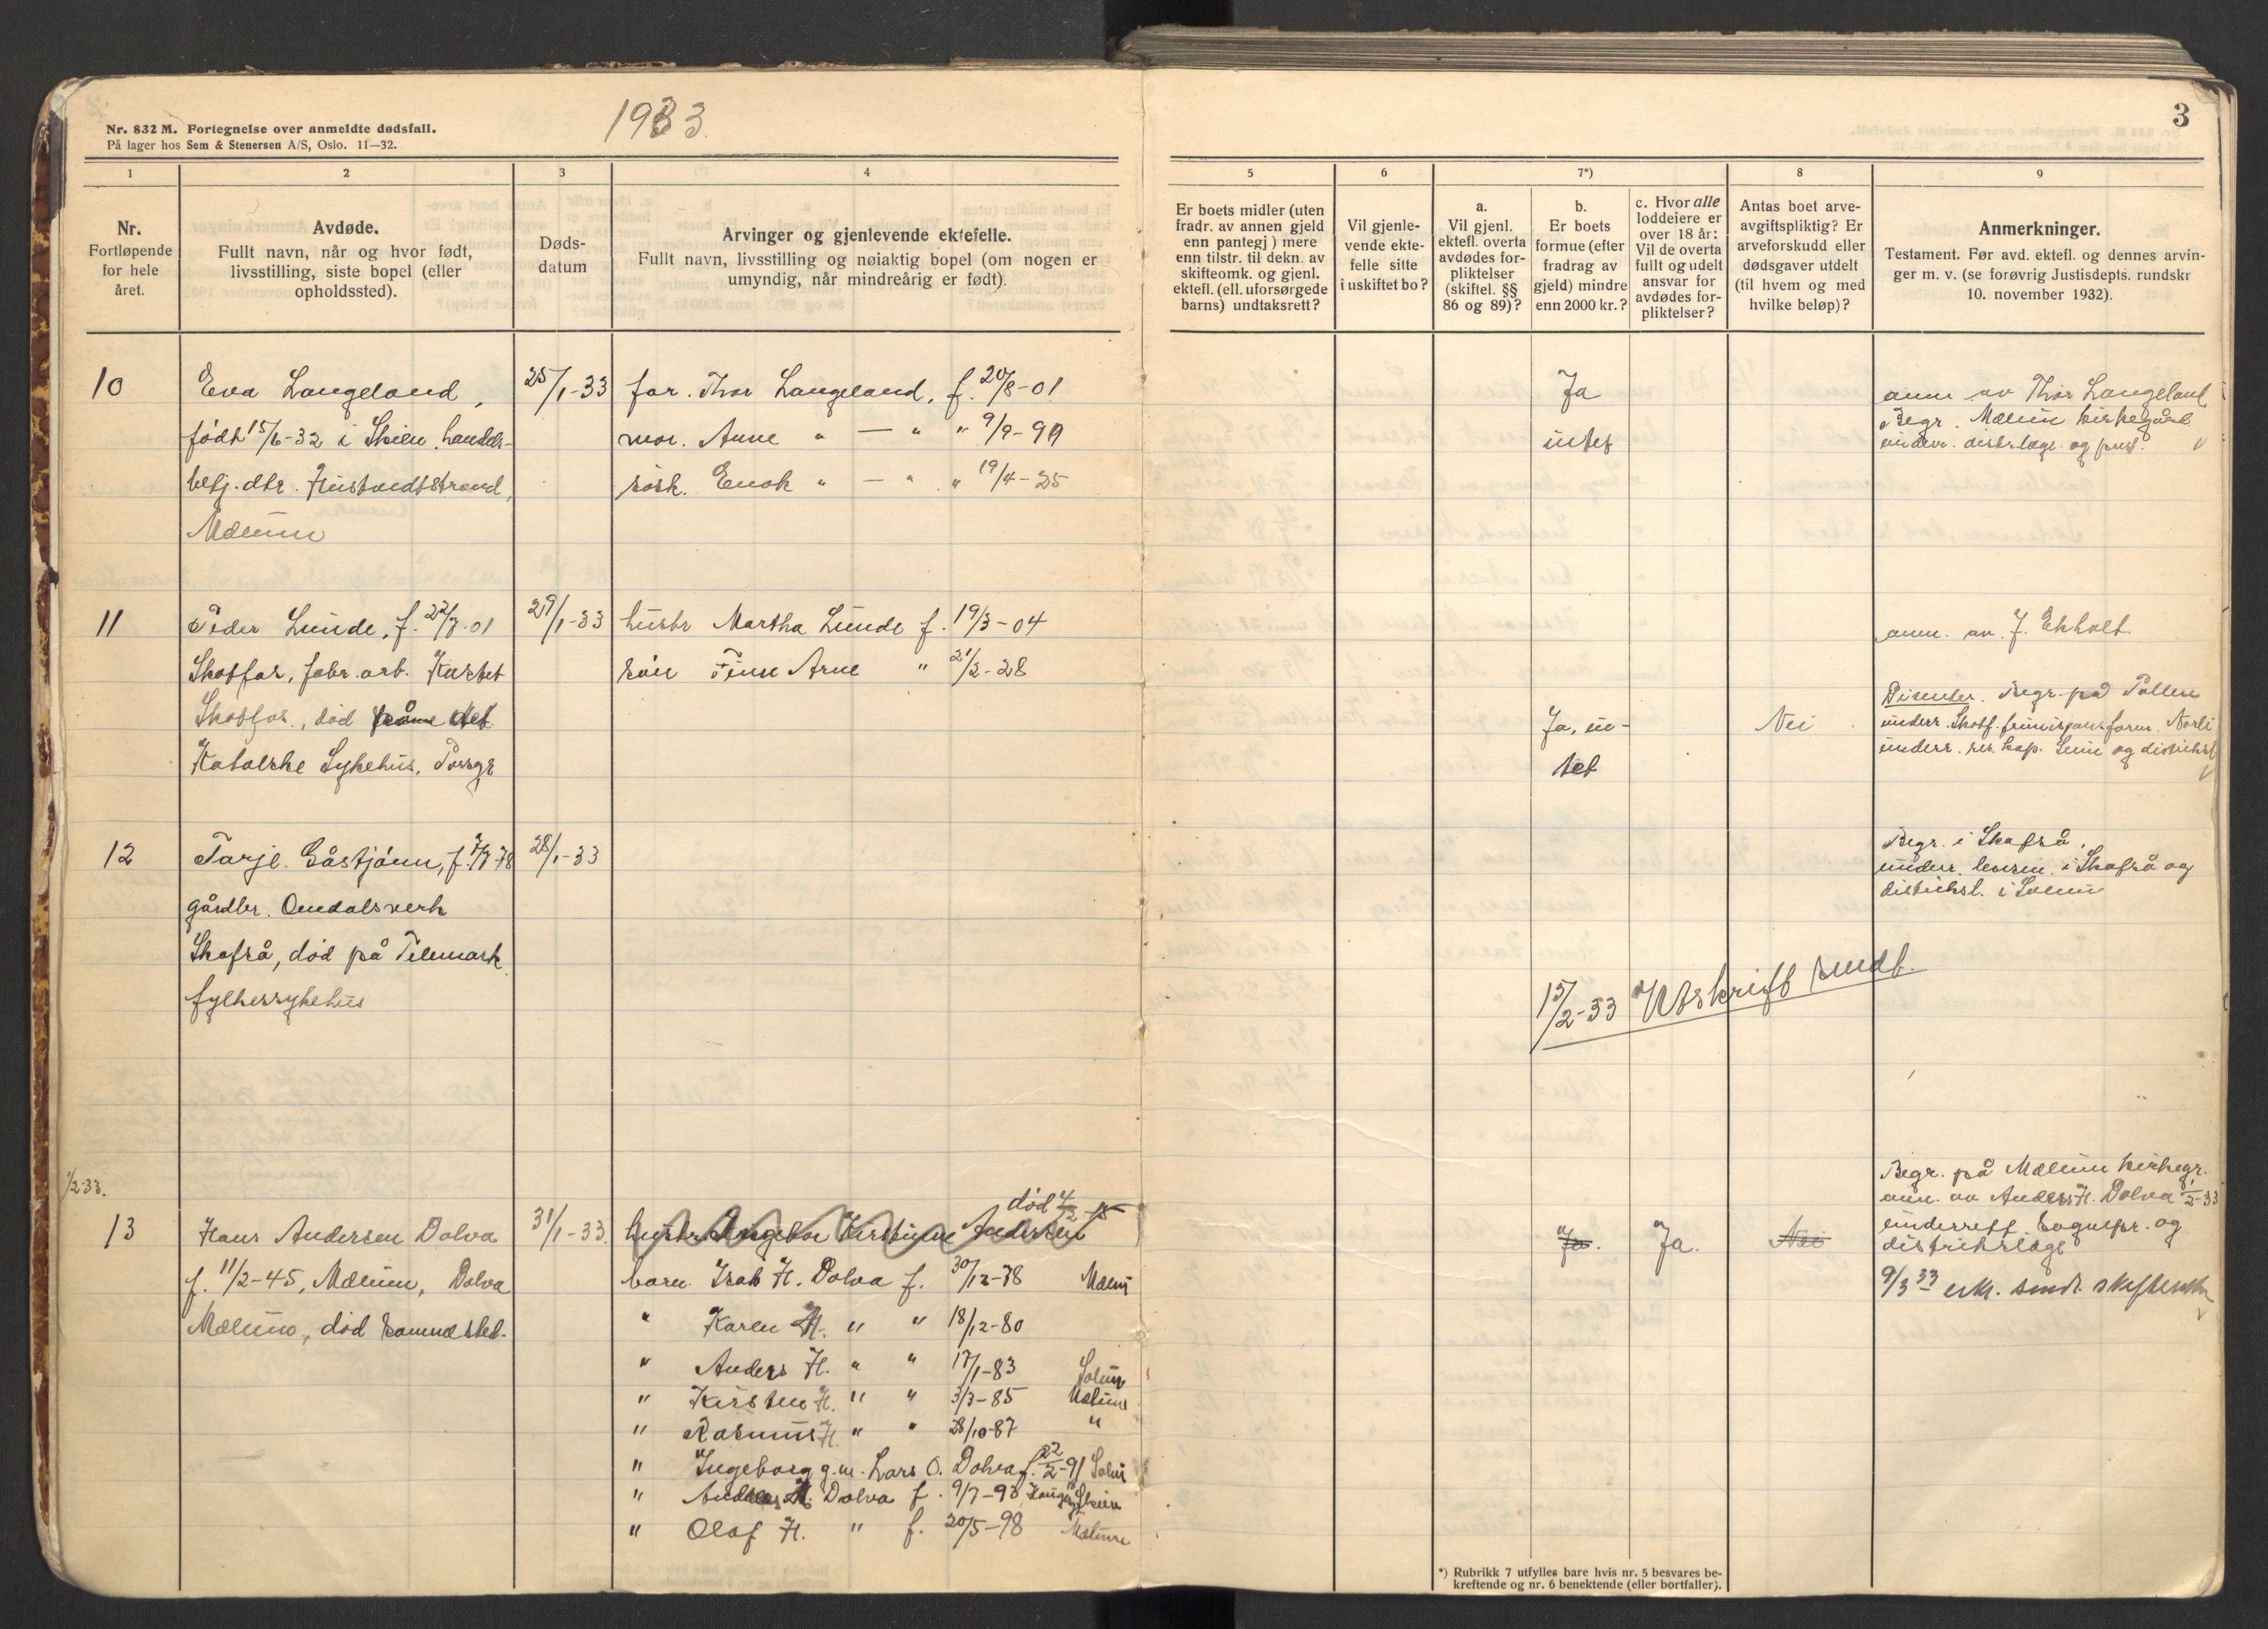 Nr. 832 M. Fortegnelse over anmeldte dødsfall.
På lager hos Sem & Stenersen A/S, Oslo. 11—32.
1933
3
1
2
3
4
5
6
7*)
8
9
Nr.
Fortløpende
for hele
året.
Avdøde.
Fullt navn, når og hvor født,
livsstilling, siste bopel (eller
opholdssted).
Døds-
datum
Arvinger og gjenlevende ektefelle.
Fullt navn, livsstilling og nøiaktig bopel (om nogen er
umyndig, når mindreårig er født).
Er boets midler (uten
fradr. av annen gjeld
enn pantegj) mere
enn tilstr. til dekn. av
skifteomk. og gjenl.
ektefl. (ell. uforsørgede
barns) undtaksrett?
Vil gjenle-
vende ekte-
felle sitte
i uskiftet bo?
a.
Vil gjenl.
ektefl. overta
avdødes for-
pliktelser
(skiftel. §§
86 og 89)?
b.
Er boets
formue (efter
fradrag av
gjeld) mindre
enn 2000 kr.?
c. Hvor alle
loddeiere er
over 18 år:
Vil de overta
fullt og udelt
ansvar for
avdødes for-
pliktelser?
Antas boet arve-
avgiftspliktig? Er
arveforskudd eller
dødsgaver utdelt
(til hvem og med
hvilke beløp)?
Anmerkninger.
Testament. Før avd. ektefl. og dennes arvin-
ger m. v. (se forøvrig Justisdepts. rundskr
10. november 1932).
10
Eva Langeland,
født 15/6-32 i Skien. handels-
betj. dtr.
Mælum
25/1-33
far. Thor Langeland, f. 20/8-01
mor. Anne " — " " 9/9-99
søsk. Enok " — " " 19/4-25
Ja
intet
anm av Thor Langeland
Begr. Mælum kirkegård
underr. distr.læge. og prest.
11
Peder Lunde, f. 22/8-01
Skotfos, fabr. arb.
Skotfos, død det
Katolske Sykehus, Porsgr
29/1-33
hustr Martha Lunde f. 19/3-04
søn Finn Arne " 21/2-28
Ja, in-
tet
Nei
anm. av J. Ekholt
Disenter. Begr. på
underr. Skotf.
underr. res. kap. og distriktsl
12
Tarje. Gåstjønn, f.
gårdbr. Omdalsverk
Skafså, død på Telemark
fylkessykehus
28/1-33
Begr. i Skafså,
underr. lensm. i Skafså og
distriktsl. i Solum
15/2-33 Utskrift sendt.
1/2-33.
13
Hans Andersen Dolva
f. 11/2-45, Mælum, Dolva
Mælum, død samme sted.
31/1-33.
død 4/2-15
hustr. Ingebor Kirstine Andersen
barn Isak H. Dolva f. 30/12-78 Mælum
" Karen H. " " 18/12-80
" Anders H. " " 17/1-83 Solum
" Kirsten H. " " 3/3-85 Mælum
" Rasmus H. " " 28/10-87 "
" Ingeborg g.m. Lars O. Dolva f. 22/2-91 Solum
" Andreas H. Dolva f. 9/7-93 Skien
" Olaf H. " f. 20/5-98 Mælum
Ja.
Ja.
Nei
Begr. på Mælum kirkegr.
anm. av Anders H. Dolva 1/2-33
underrett. sognepr. og
distriktslæge
9/3 33 erkl. sendt. skifteretten
*) Rubrikk 7 utfylles bare hvis nr. 5 besvares be-
kreftende og nr. 6 benektende (eller bortfaller).